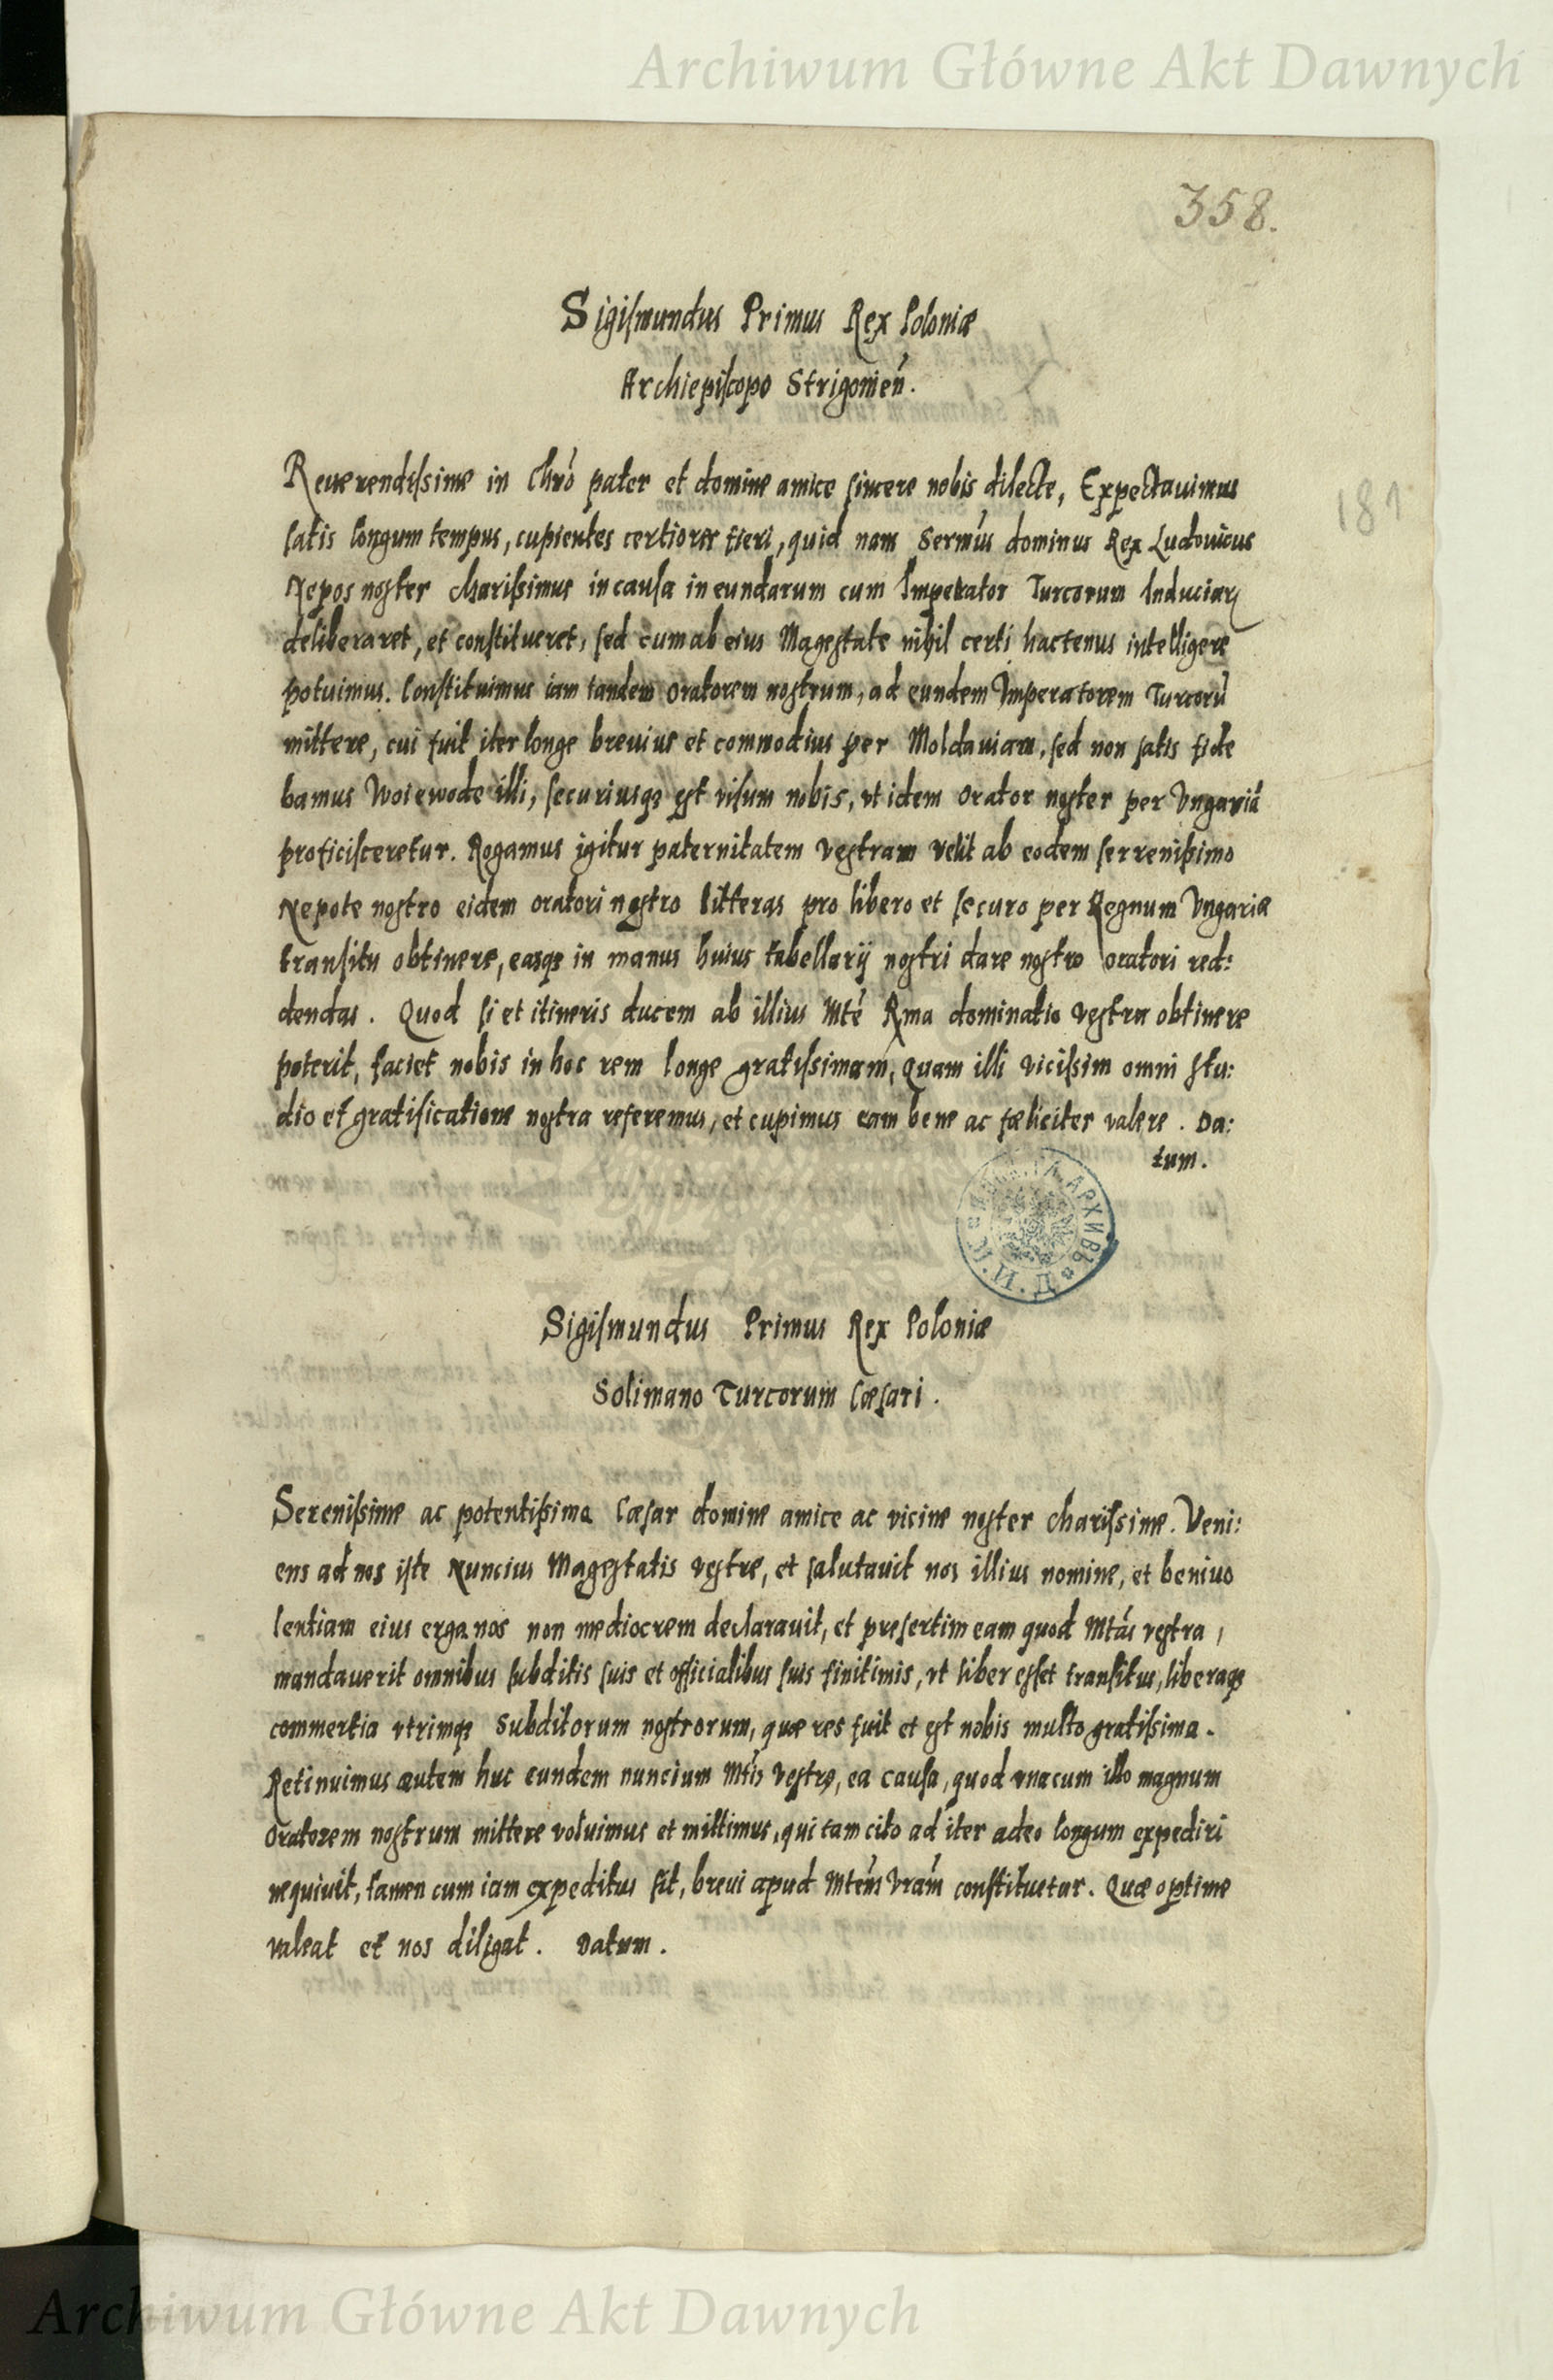 Archiwum Główne Akt Dawnych
358.
Sigiſmundus Primus Rex Poloniæ
Archiepiſcopo Strigonień.
Reuerendiſsime in Chrō pater et domine amice ſincere nobis dilecte, Expectauimus
181
ſatis longum tempus, cupientes certiores fieri, quid nam Sermus dominus Rex Ludouicus
Nepos noſter chariſsimus in cauſa in eundarum cum Imperator Turcorum Induciarꝝ
deliberaret, et conſtitueret, ſed cum ab eius Mageſtate nihil certi hactenus intelligere
potuimus. Conſtituimus iam tandem oratorem noſtrum, ad eundem Imperatorem Turcorū
mittere, cui fuit iter longe breuius et commodius per Moldauiam, ſed non ſatis fide
bamus Woiewode illi, ſecuriusqꝫ eſt viſum nobis, vt idem orator noſter per Vngariā
proficiſceretur. Rogamus igitur paternitatem veſtram velit ab eodem ſerreniſsimo
Nepote noſtro eidem oratori noſtro litteras pro libero et ſecuro per Regnum Vngariæ
tranſitu obtinere, easqꝫ in manus huius tabellarij noſtri dare noſtro oratori red:
dendas. Quod ſi et itineris ducem ab illius Mte Rma dominatio veſtra obtinere
poterit, faciet nobis in hoc rem longe gratiſsimam, quam illi viciſsim omni ſtu:
dio et gratificatione noſtra referemus, et cupimus eam bene ac fæliciter valere. Da:
tum.
АРХИВЪ
Sigiſmundus Primus Rex Poloniæ
Solimano Turcorum Cæſari.
Sereniſsime ac potentiſsima Cæſar domine amice ac vicine noſter chariſsime. Veni:
ens ad nos iſte Nuncius Mageſtatis veſtre, et ſalutauit nos illius nomine, et beniuo
lentiam eius erga nos non mediocrem declarauit, et preſertim eam quod Mtás veſtra,
mandauerit omnibus ſubditis ſuis et officialibus ſuis finitimis, vt liber eſſet tranſitus, liberaqꝫ
commertia vtrimqꝫ Subditorum noſtrorum, quæ res fuit et eſt nobis multo gratiſsima.
Retinuimus autem huc eundem nuncium Mtis veſtre, ea cauſa, quod vnacum illo magnum
oratorem noſtrum mittere voluimus et mittimus, qui tam cito ad iter adeo longum expediri
nequiuit, tamen cum iam expeditus ſit, breui apud Mtem Vram conſtituetur. Quæ optime
valeat et nos diligat. Datum.
Archiwum Główne Akt Dawnych